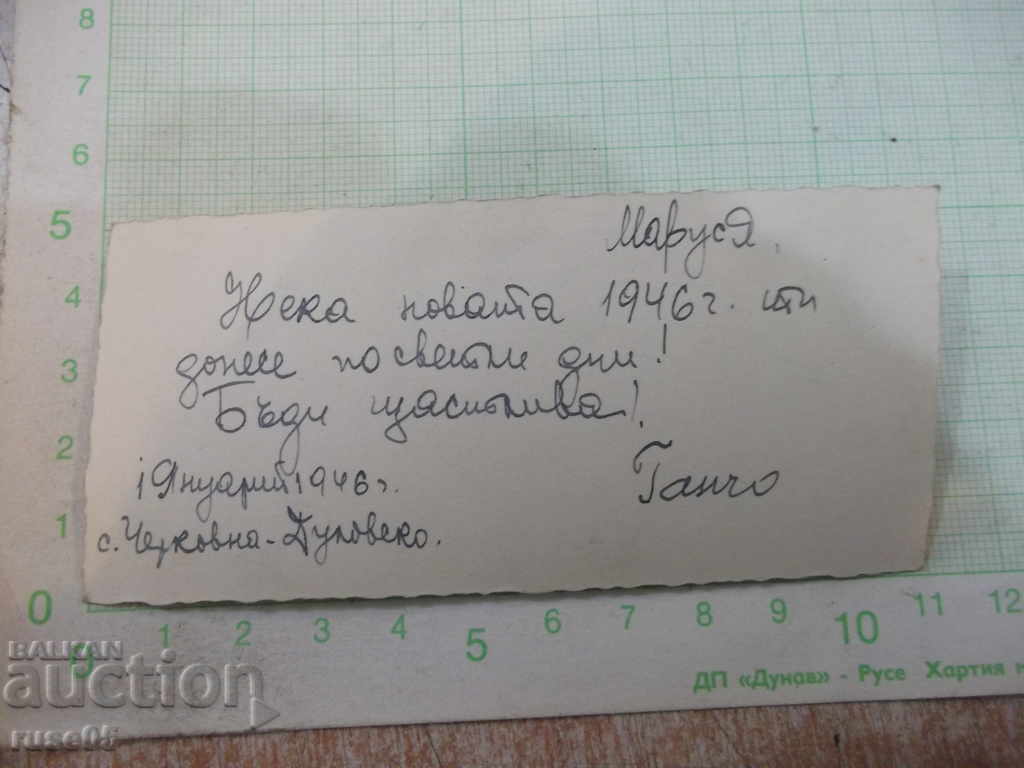 8
7
6
5
4
3
2
1
0
Маруся,
Нека новата 1946 г. ти
донесе по светли дни!
Бъди щастлива!
Ганчо
1 Януарий 1946 г.
с. Черковна - Дуловско.
0 1 2 3 4 5 6 7 8 9 10 11 12
ДП «Дунав» - Русе Хартия
BALKAN
auction
ruse05